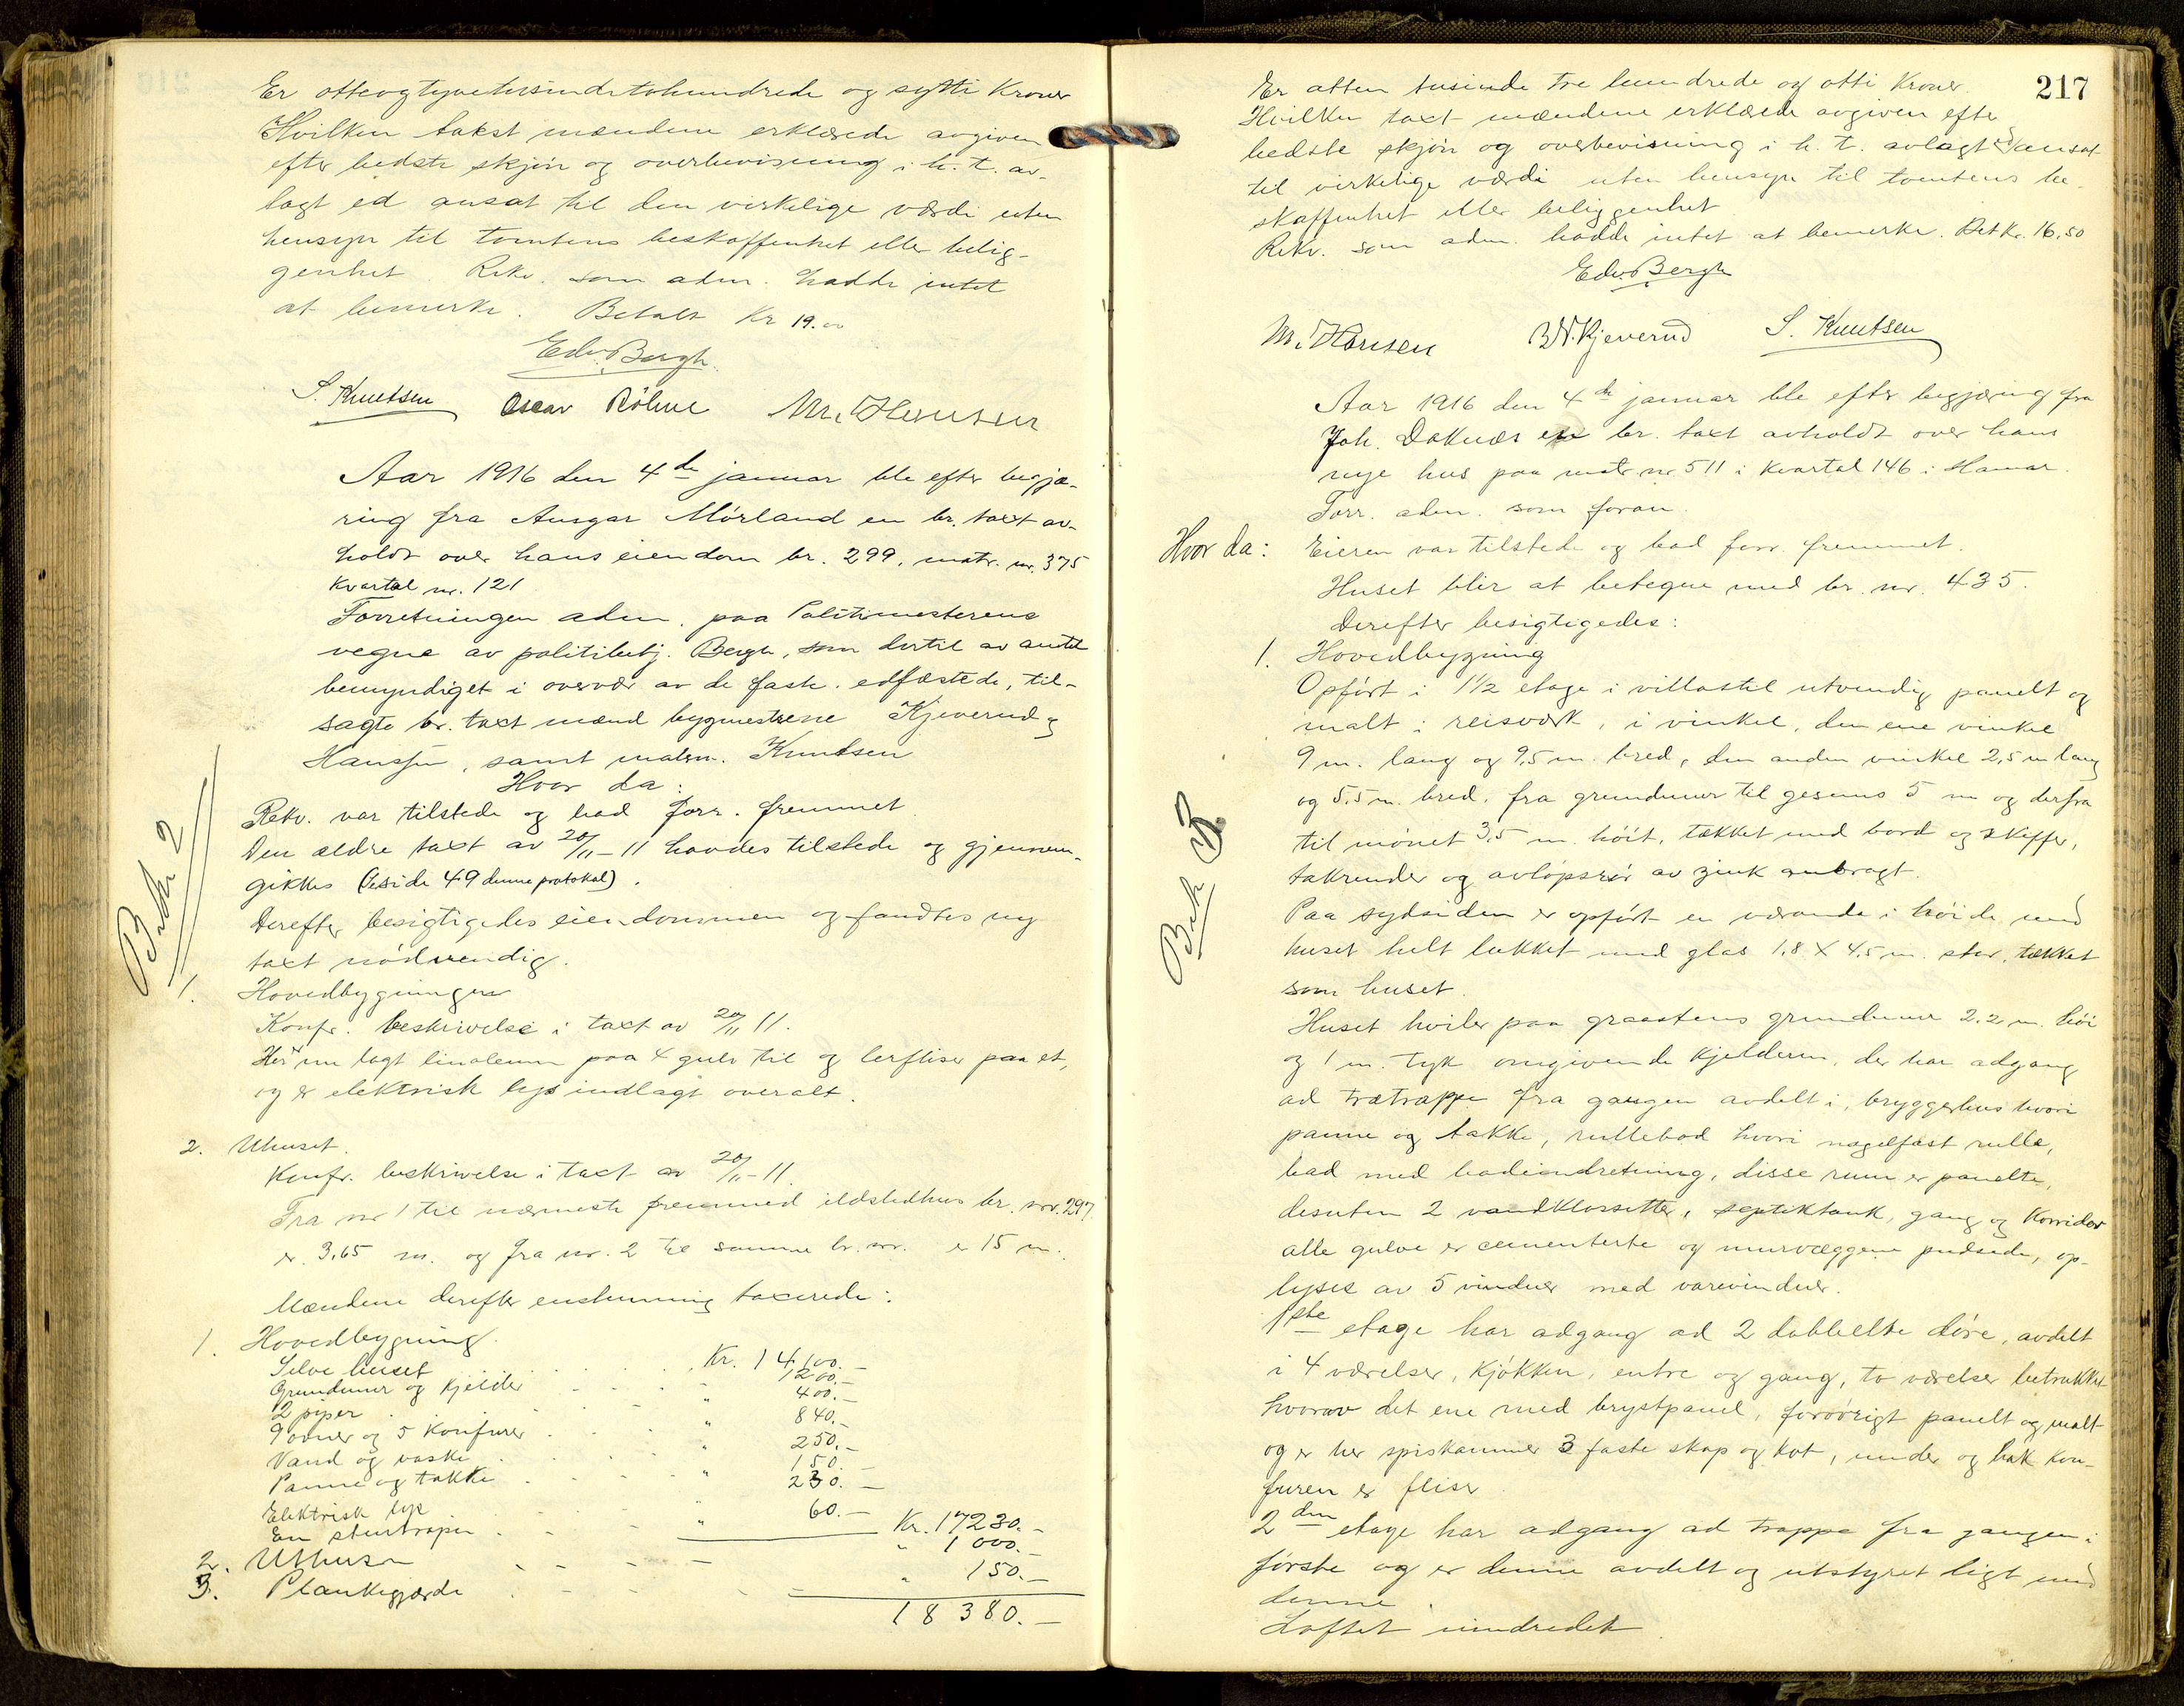 Er otteogtyvetusindetohundrede og sytti Kroner
Hvilken takst mændene erklærede avgiven
efter bedste skjøn og overbevisning i h. t. av-
lagt ed ansat til den virkelige værdi uten
hensyn til tomtens beskaffenhet eller belig-
genhet. Rekv. som adm. hadde intet
at bemerke. Betalt Kr 19.00
Edv. Bergh.
S. Knutsen Oscar Røhne M. Hansen
Aar 1916 den 4de januar ble efter begjæ-
ring fra Ansgar Mørland en br. taxt av-
holdt over hans eiendom br. 299, matr. nr. 375
Kvartal nr. 121
Forretningen adm. paa Politimesterens
vegne av politibetj. Bergh, som dertil av amtet
bemyndiget i overvær av de faste, edfæstede, til-
sagte br. taxt mænd bygmestrene Kjeverud og
Hansen, samt malerm. Knudsen
Hvor da:
Rekv. var tilstede og bad forr. fremmet
Den ældre taxt av 20/11-11 havdes tilstede og gjennem-
gikkes (Se side 49 denne protokal).
Derefter besigtigedes eiendommen og fandtes ny
taxt nødvendig.
Betr 2
1. Hovedbygningen
Konfr. beskrivelse i taxt av 20/11 11.
Her nu lagt linoleum paa 4 gulv til og lerfliser paa et,
og er elektrisk lys indlagt overalt.
2. Uhuset.
Konfr. beskrivelse i taxt av 20/11-11.
Fra nr 1 til nærmeste fremmed ildstedhus br. nr. 297.
er 3,65 m. og fra nr. 2 til samme br. nr. er 15 m.
Mændene derefter enstemmig taxerede:
1. Hovedbygning.
Selve huset Kr. 14100.-
Grundmur og kjelder " 1200.-
2 piper " 400.-
9 ovner og 5 Komfurer " 840.-
Vand og vaske " 250.-
Panne og takke " 150.-
Elektrisk lys " 230.-
En stentrapp " 60.- Kr. 17230.-
2. Uthuse " 1000.-
3. Plankegjærde " 150.-
18380.-
217
Er atten tusinde tre hundrede og otti Kroner.
Hvilken taxt mændene erklæede avgiven efte
bedste skjøn og overbevisning i h. t. avlagt ed ansat
til virkelige værdi uten hensyn til tomtens be-
skaffenhet eller beliggenhet
Rekv. som adm. hadde intet at bemerke. Bet Kr. 16,50
Edv. Bergh
M. Hansen B. N. Kjeverud S. Knutsen
Aar 1916 den 4de januar ble efter begjæring fra
Joh. Doknæs en br. taxt avholdt over hans
nye hus paa matr nr 511 i Kvartal 146 i Hamar.
Forr. adm. som foran.
Hvor da: Eieren var tilstede og bad forr. fremmet.
Huset blir at betegne med br. nr. 435.
Derefter besigtigedes:
Betr 3
1. Hovedbygning
Opført i 1½ etage i villastil utvendig panelt og
malt i reisverk, i vinkel, den ene vinkel
9 m. lang og 9,5 m. bred, den anden vinkel 2,5 m lang
og 5,5 m. bred. fra grundmur til gesims 5 m og derfra
til mønet 3,5 m. høit, tækket med bord og skiffer,
takrender og avløpsrør av zink anbragt.
Paa sydsiden er opført en veranda i høide med
huset helt lukket med glas 1,8 x 4,5 m. stor, tækket
som huset.
Huset hviler paa graastens grundmur 2.2 m. høi
og 1 m. tyk omgivende kjelderen, der har adgang
ad trætrappe fra gangen avdelt i, bryggerhus hvori
panne og takke, rullebod hvori nagelfast rulle,
bad med badeindretning, disse rum er panelte,
desuten 2 vandklossetter, septiktank, gang og Korridor
alle gulve er cementerte og murvæggene pudsede, op-
lyses av 5 vinduer med varevinduer.
1ste etage har adgang ad 2 dobbelte døre, avdelt
i 4 værelser, kjøkken, entre og gang, to værelser betrukket
hvorav det ene med brystpanel, forøvrigt panelt og malt
og er her spiskammer 3 faste skap og kot, under og bak kom-
furen er fliser.
2den etage har adgang ad trappe fra gangen i
første og er denne avdelt og utstyret ligt med
denne.
Loftet uindredet